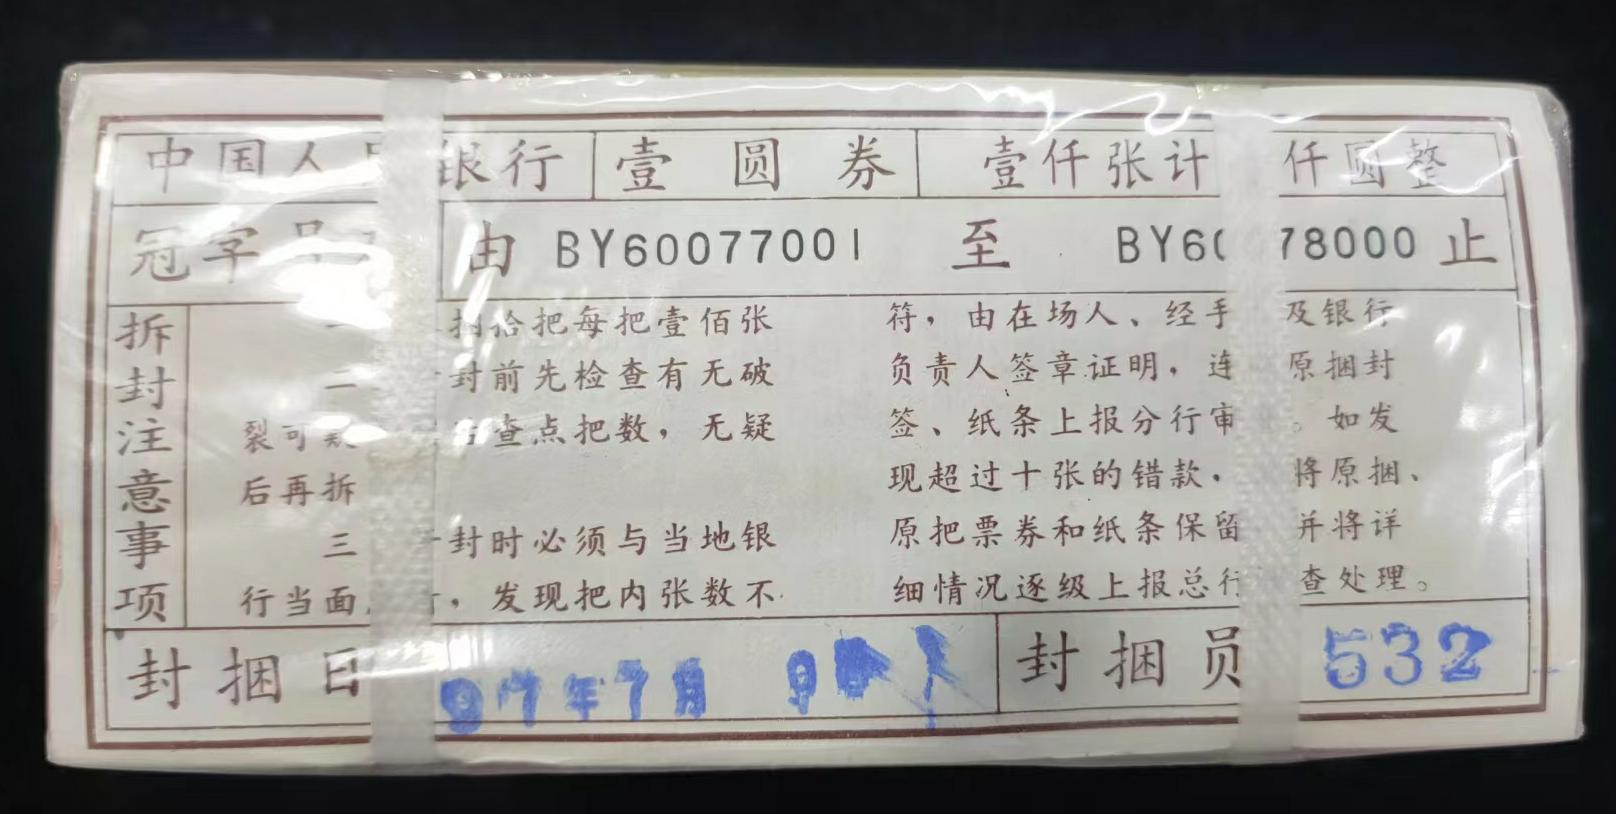 中国人 银行 壹圆券 壹仟张计 仟圆整
冠字号 由 BY60077001 至 BY60 78000 止
拆封注意事项
捆洽把每把壹佰张
二 封前先检查有无破
裂可疑 查点把数，无疑
后再拆
三 封时必须与当地银
行当面 ，发现把内张数不
符，由在场人、经手 及银行
负责人签章证明，连 原捆封
签、纸条上报分行审 。如发
现超过十张的错款， 将原捆、
原把票券和纸条保留 并将详
细情况逐级上报总行 查处理。
封捆日 97年7月
封捆员 532